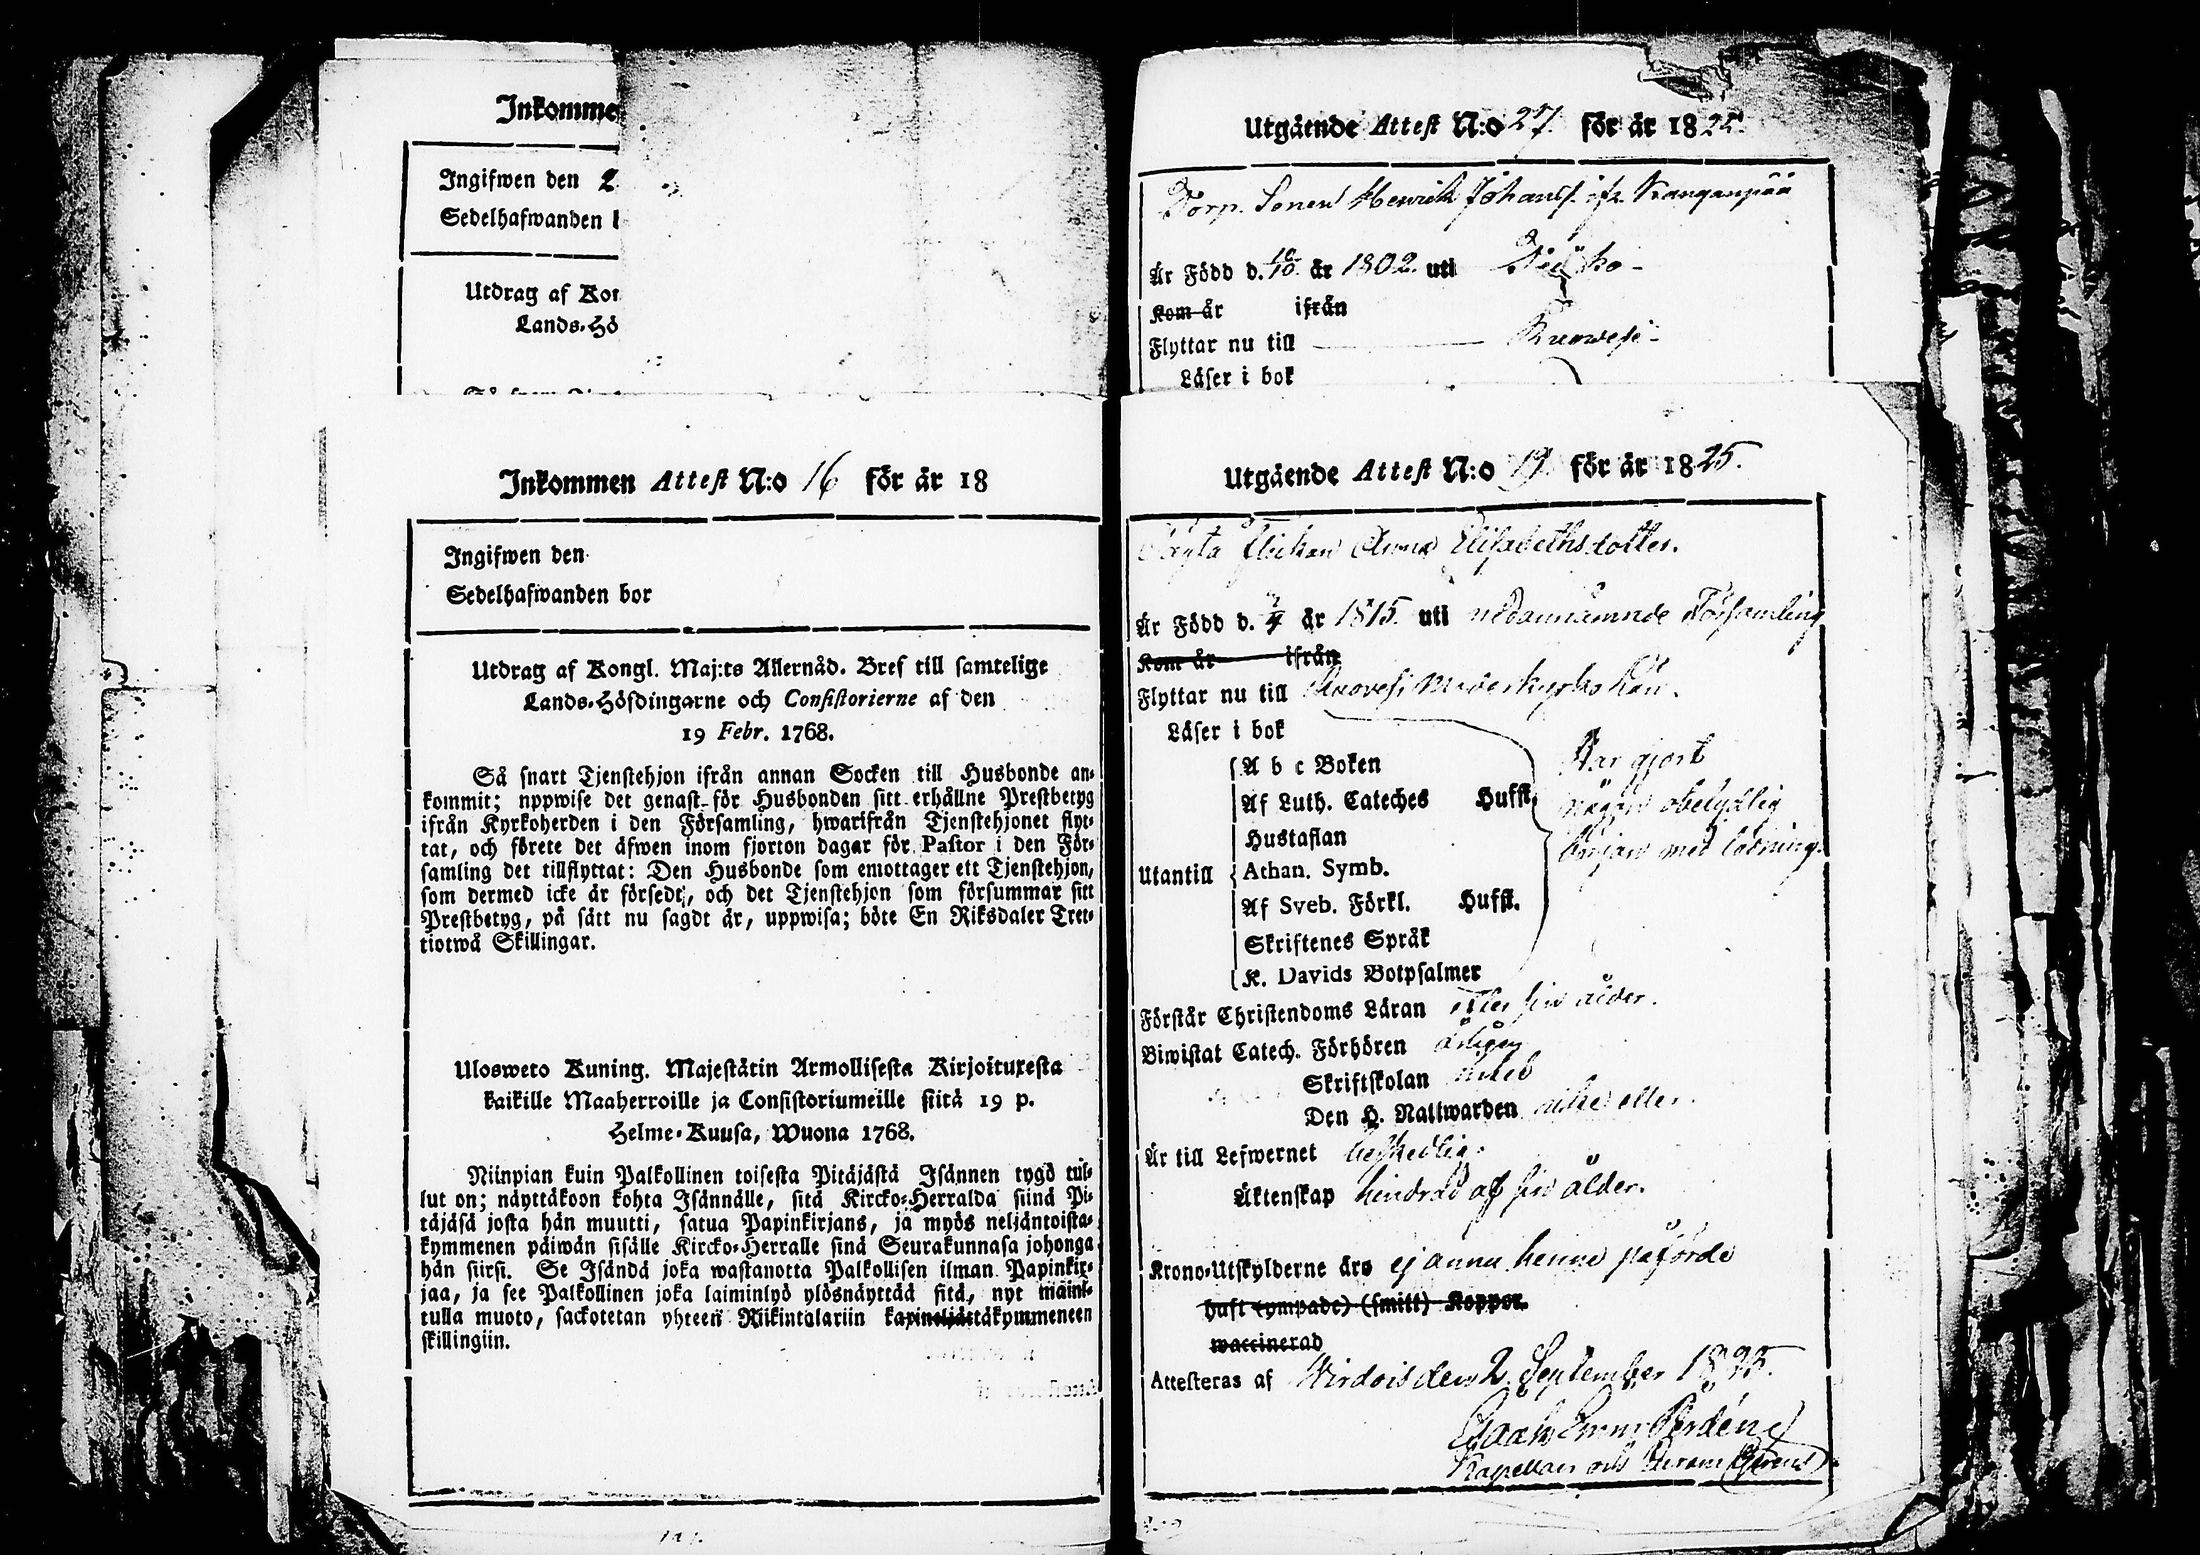 Inkomme
Ingifwen den 2
Sedelhafwanden
Utdrag af Kon
Lands-Hö
Utgående Attest N:o 27. för år 1825.
Torp. Sonen Henrik Johanss. ifr. Kanganpää
Är Född d. år 1802. uti
Kom år ifrån
Flyttar nu till Ruowesi
Läser i bok
Inkommen Attest N:o 16 för år 18
Ingifwen den
Sedelhafwanden bor
Utdrag af Kongl. Maj:ts Allernåd. Bref till samtelige
Lands-Höfdingarne och Consistorierne af den
19 Febr. 1768.
Så snart Tjenstehjon ifrån annan Socken till Husbonde an-
kommit; uppwise det genast för Husbonden sitt erhållne Prestbetyg
ifrån Kyrkoherden i den Församling, hwarifrån Tjenstehjonet flyt-
tat, och förete det äfwen inom fjorton dagar för Pastor i den För-
samling det tillflyttat: Den Husbonde som emottager ett Tjenstehjon,
som dermed icke är försedt, och det Tjenstehjon som försummar sitt
Prestbetyg, på sätt nu sagdt är, uppwisa; böte En Riksdaler Tret-
tiotwå Skillingar.
Ulosweto Kuning. Majestätin Armollisesta Kirjoituxesta
kaikille Maaherroille ja Consistoriumeille siitä 19 p.
Helme-Kuusa, Wuona 1768.
Niinpian kuin Palkollinen toisesta Pitäjästä Isännen tygö tul-
lut on; näyttäkoon kohta Isännälle, sitä Kircko-Herralda siinä Pi-
täjäsä josta hän muutti, satua Papinkirjans, ja myös neljäntoista-
kymmenen päiwän sisälle Kircko-Herralle sinä Seurakunnasa johonga
hän siirsi. Se Isändä joka wastanotta Palkollisen ilman Papinkir-
jaa, ja see Palkollinen joka laiminlyö ylösnäyttää sitä, nyt maini-
tulla muoto, sackotetan yhteen Riikintalariin kaxineljättäkymmeneen
skillingiin.
Utgående Attest N:o 19. för år 1825.
Flickan Anna Elisabethsdotter.
Är Född d. år 1815. uti nedannämnde Församling
Kom år ifrån
Flyttar nu till Ruovesi Moderkyrko
Läser i bok
A b c Boken Har gjort
Af Luth. Cateches Hufst. någon obetydlig
Hustaflan början med läsning.
Utantill Athan. Symb.
Af Sveb. Förkl. Hufst.
Skriftenes Språk
K. Davids Botpsalmer
Förstår Christendoms Läran efter sin ålder.
Biwistat Catech. Förhören årligen
Skriftskolan
Den H. Nattwarden
Är till Lefwernet beskedlig.
Äktenskap hindrad af sin ålder.
Krono-Utskylderne äro ej annu henne påförde
haft (ympade) (smitt) Koppor.
waccinerad
Attesteras af Wirdois den 2. September 1825.
Kapellan och